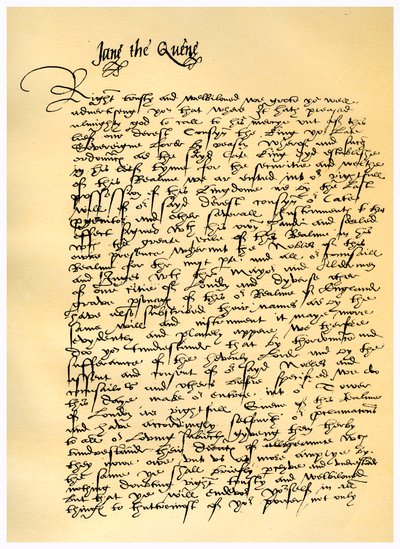 Jane the Quene
Right trusty and welbiloved we grete you well
advertysing you that where it hath pleased
almighty god to call to his mercie out of this
life our derest Cousyn the King your late
Sovereigne lorde by reason wherof and suche
ordenances as the sayd late King did establishe
in his life tyme for the securitie and wealthe
of this Realme we are entred into our rightfull
possession of this kingdome as by the last
will of our sayd derest cousyn our late
and other severall Instruments to that
effect signed with his own hande and sealed
with the greate seale of this Realme in his
owne presence wherunto the Nobles of this
Realme for the most parte and all our counsaill
and Juges with the Mayor and Aldermen
of our citie of London and dyvers other
grave personages of this our Realme of England
have also subscribed their names as by the
same will and instrument it may more
evydently and playnely appeare we therfore
doo you tunderstande that by thordenance and
sufferaunce of the hevenly lord and by the
assent and consent of our sayd Nobles and
counsailors and others before specified we doo
this daye make our entree into our Tower
of London as rightfull Quene of this Realme
and have accordingly setfurth our proclamacions
to all our loving subjects gyving them therby
tunderstande their dueties of allegeaunce which
they nowe owe unto us as more amplye by
the same you shall briefly perceyve and understand
nothing doubting right trusty and welbiloved
but that you will endevor yourself in all
things to thuttermost of your power not only